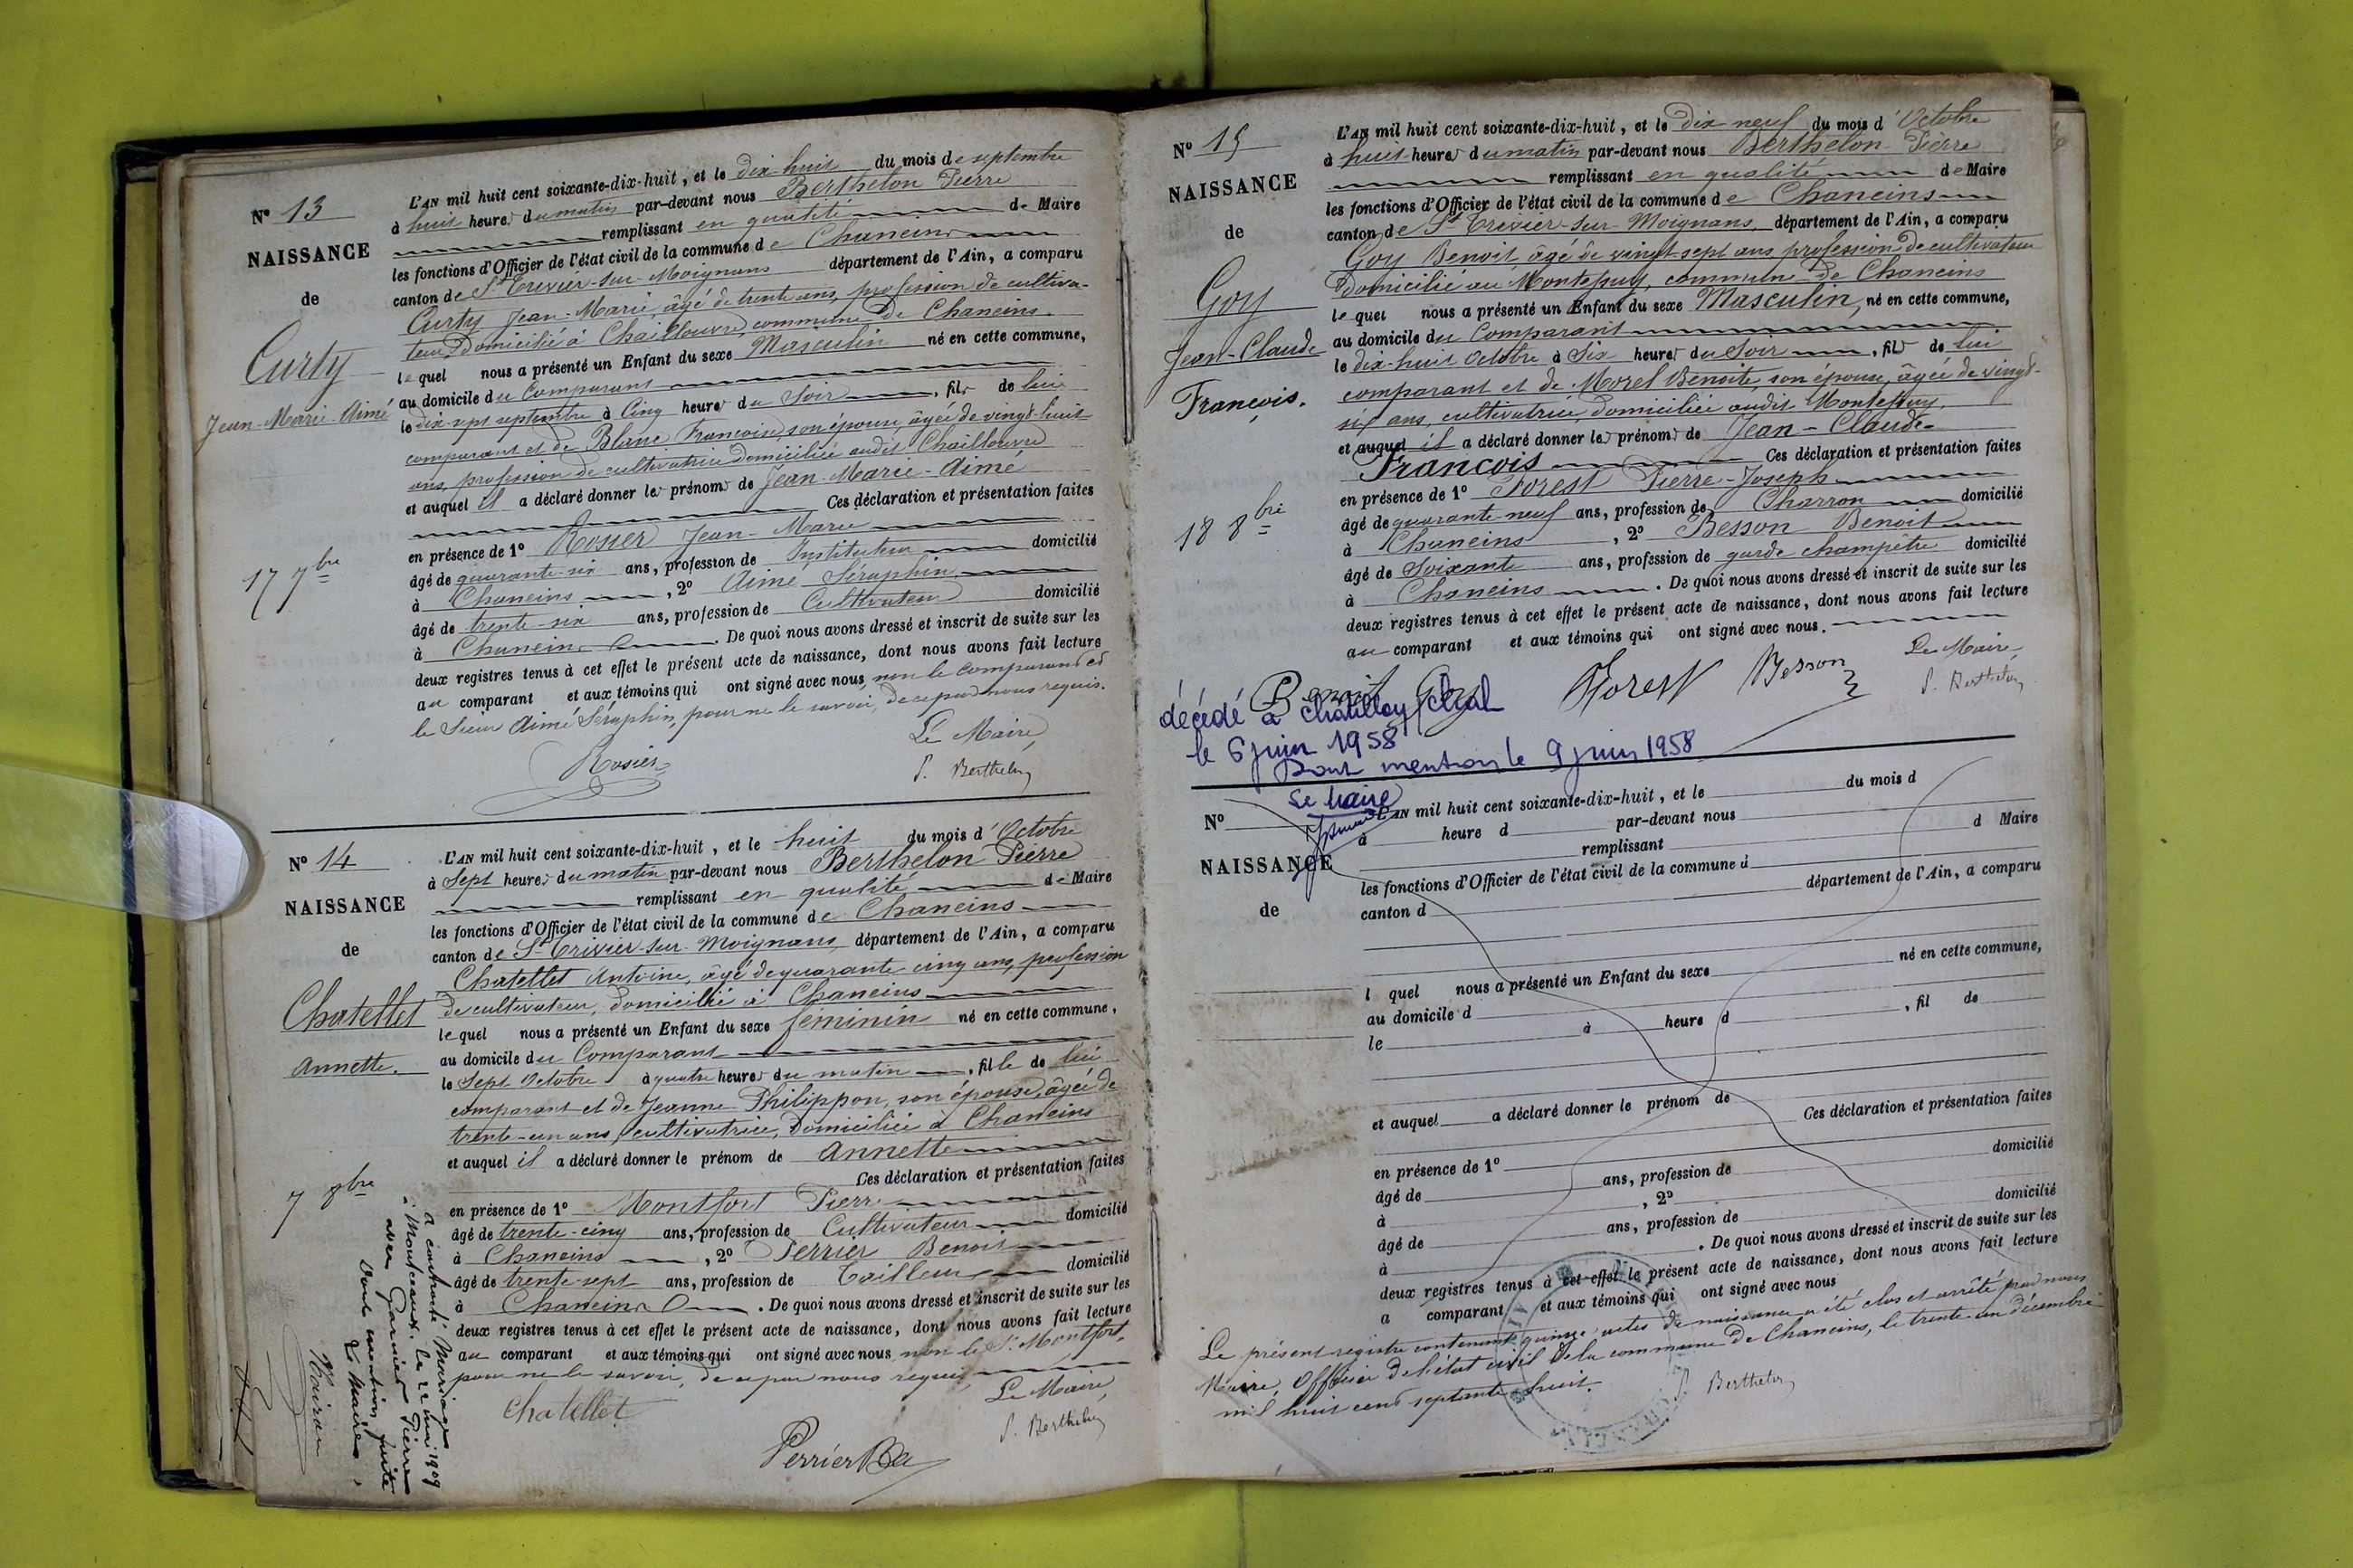 N° 13
NAISSANCE
de
Curty
Jean-Marie-Aimé
17 7bre
L'AN mil huit cent soixante-dix-huit, et le dix-huit du mois de septembre
à huit heures du matin par-devant nous Berthelon Pierre
remplissant en qualité de Maire
les fonctions d'Officier de l'état civil de la commune de Chaneins
canton de St Trivier-sur-Moignans département de l'Ain, a comparu
Curty Jean-Marie, âgé de trente ans, profession de cultiva-
teur, domicilié à Chaillouvre, commune de Chaneins.
lequel nous a présenté un Enfant du sexe Masculin né en cette commune,
au domicile du Comparant
le dix-sept septembre à Cinq heures du Soir, fils de lui
comparant et de Blanc Françoise, son épouse, âgée de vingt-huit
ans, profession de cultivatrice domiciliée audit Chaillouvre
et auquel il a déclaré donner les prénoms de Jean-Marie-Aimé
Ces déclaration et présentation faites
en présence de 1° Rosier Jean-Marie
âgé de quarante-six ans, profession de Instituteur domicilié
à Chaneins, 2° Aimé Séraphin
âgé de trente-six ans, profession de Cultivateur domicilié
à Chaneins. De quoi nous avons dressé et inscrit de suite sur les
deux registres tenus à cet effet le présent acte de naissance, dont nous avons fait lecture
au comparant et aux témoins qui ont signé avec nous, non le comparant et
le Sieur Aimé Séraphin, pour ne le savoir, de ce par nous requis.
Le Maire,
Rosier
P. Berthelon
N° 14
NAISSANCE
de
Chatellet
Annette.
7 8bre
L'AN mil huit cent soixante-dix-huit, et le huit du mois d'Octobre
à Sept heures du matin par-devant nous Berthelon Pierre
remplissant en qualité de Maire
les fonctions d'Officier de l'état civil de la commune de Chaneins
canton de St Trivier-sur-Moignans département de l'Ain, a comparu
Chatellet Antoine, âgé de quarante-cinq ans, profession
de cultivateur, domicilié à Chaneins
lequel nous a présenté un Enfant du sexe féminin né en cette commune,
au domicile du Comparant
le Sept Octobre à quatre heures du matin, fille de lui
comparant et de Jeanne Philippon, son épouse, âgée de
trente-un ans, cultivatrice, domiciliée à Chaneins
et auquel il a déclaré donner le prénom de Annette
Ces déclaration et présentation faites
en présence de 1° Montfort Pierre
âgé de trente-cinq ans, profession de Cultivateur domicilié
à Chaneins, 2° Perrier Benoit
âgé de trente-sept ans, profession de Tailleur domicilié
à Chaneins. De quoi nous avons dressé et inscrit de suite sur les
deux registres tenus à cet effet le présent acte de naissance, dont nous avons fait lecture
au comparant et aux témoins qui ont signé avec nous non le Sr Montfort,
pour ne le savoir, de ce par nous requis
Le Maire,
Chatellet
P. Berthelon
Perrier Ba
a contracté Mariage
Montceaux, le 22 mai 1909
avec Garnier Pierre
Dont mention faite
Le Maire,
N° 15
NAISSANCE
de
Goy
Jean-Claude
François.
18 8bre
L'AN mil huit cent soixante-dix-huit, et le Dix neuf du mois d'Octobre
à huit heures du matin par-devant nous Berthelon Pierre
remplissant en qualité de Maire
les fonctions d'Officier de l'état civil de la commune de Chaneins
canton de St Trivier-sur-Moignans département de l'Ain, a comparu
Goy Benoit âgé de vingt-sept ans profession de cultivateur
domicilié au Montessuy, commune de Chaneins
lequel nous a présenté un Enfant du sexe Masculin, né en cette commune,
au domicile du Comparant
le dix-huit Octobre à Six heures du Soir, fils de lui
comparant et de Morel Benoite, son épouse, âgée de vingt-
six ans, cultivatrice, domiciliée audit Montessuy,
et auquel il a déclaré donner les prénoms de Jean-Claude-
François Ces déclaration et présentation faites
en présence de 1° Forest Pierre-Joseph
âgé de quarante neuf ans, profession de Charron domicilié
à Chaneins, 2° Besson Benoit
âgé de Soixante ans, profession de garde champêtre domicilié
à Chaneins. De quoi nous avons dressé et inscrit de suite sur les
deux registres tenus à cet effet le présent acte de naissance, dont nous avons fait lecture
au comparant et aux témoins qui ont signé avec nous.
Le Maire,
Benoit Goy Forest Besson P. Berthelon
décédé à Chatillon s/Chal
le 6 juin 1958
Dont mention le 9 juin 1958
Le Maire
N°
NAISSANCE
de
L'AN mil huit cent soixante-dix-huit, et le du mois d
à heure d par-devant nous
remplissant d Maire
les fonctions d'Officier de l'état civil de la commune d
canton d département de l'Ain, a comparu
l quel nous a présenté un Enfant du sexe né en cette commune,
au domicile d
le à heure d , fil de
et auquel a déclaré donner le prénom de
Ces déclaration et présentation faites
en présence de 1°
âgé de ans, profession de domicilié
à , 2°
âgé de ans, profession de domicilié
à . De quoi nous avons dressé et inscrit de suite sur les
deux registres tenus à cet effet le présent acte de naissance, dont nous avons fait lecture
a comparant et aux témoins qui ont signé avec nous
Le présent registre contenant quinze actes de naissance a été clos et arrêté par nous
Maire, Officier de l'état civil de la commune de Chaneins, le trente-un décembre
mil huit cent septante-huit.
P. Berthelon